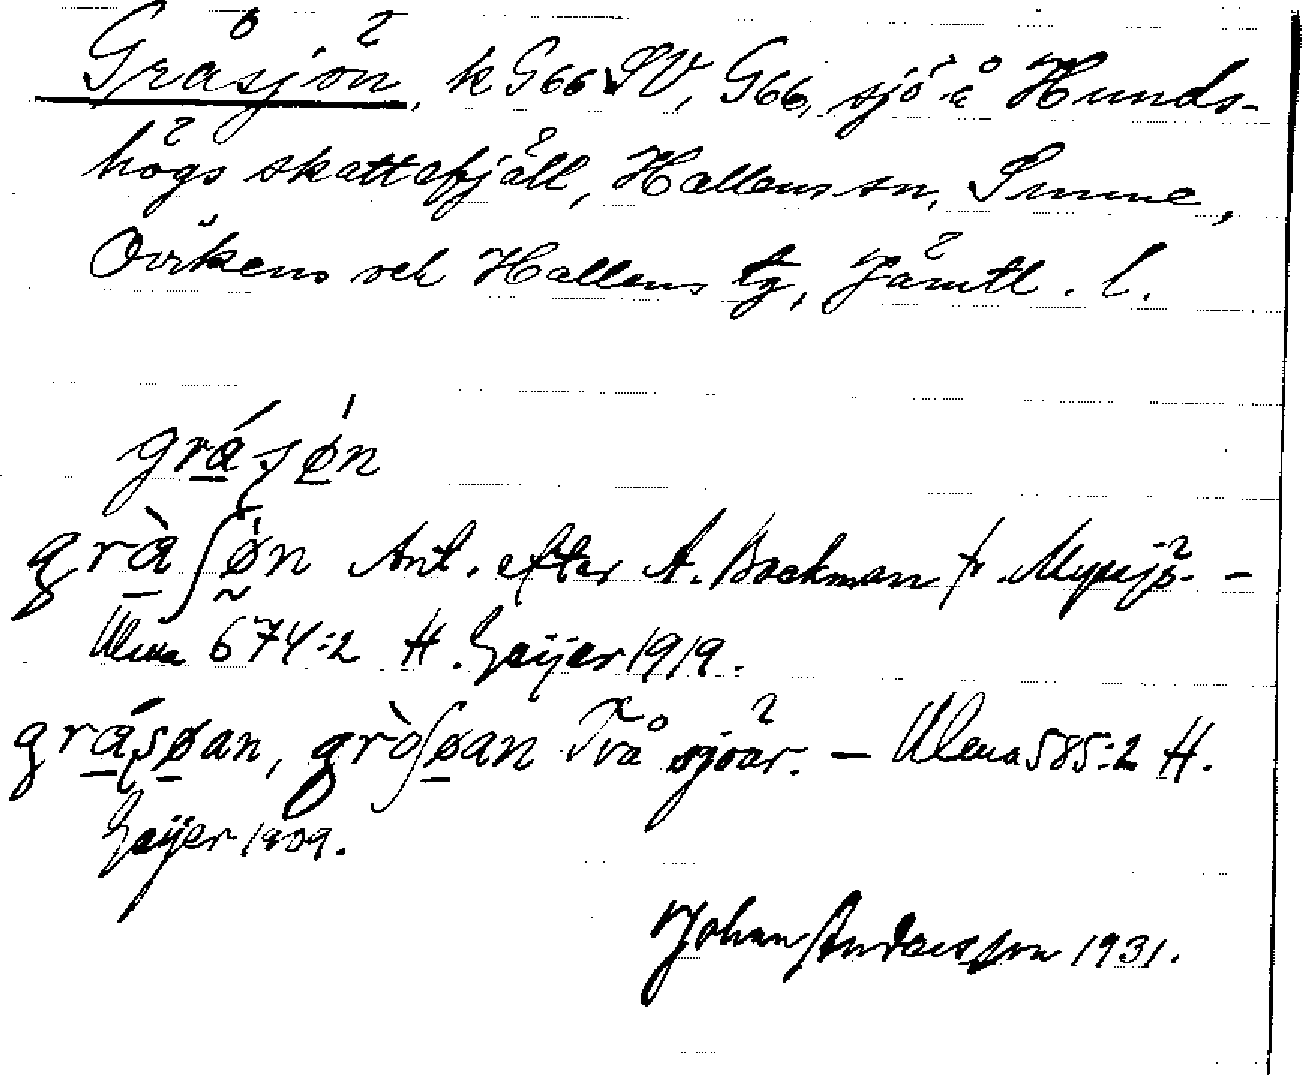 Gråsjön, k G66 SV, G66, sjö å Hunds-
högs skattefjäll, Hallens sn, Sunne,
Ovikens och Hallens tg, Jämtl. l.
grásøn
gràʃøn Ant. efter A. Backman fr. Mysjö. -
Ulma 674:2 H. Geijer 1919.
grásøan, gròʃøan Två sjöar. - Ulma 585:2 H.
Geijer 1909.
Johan Andersson 1931.